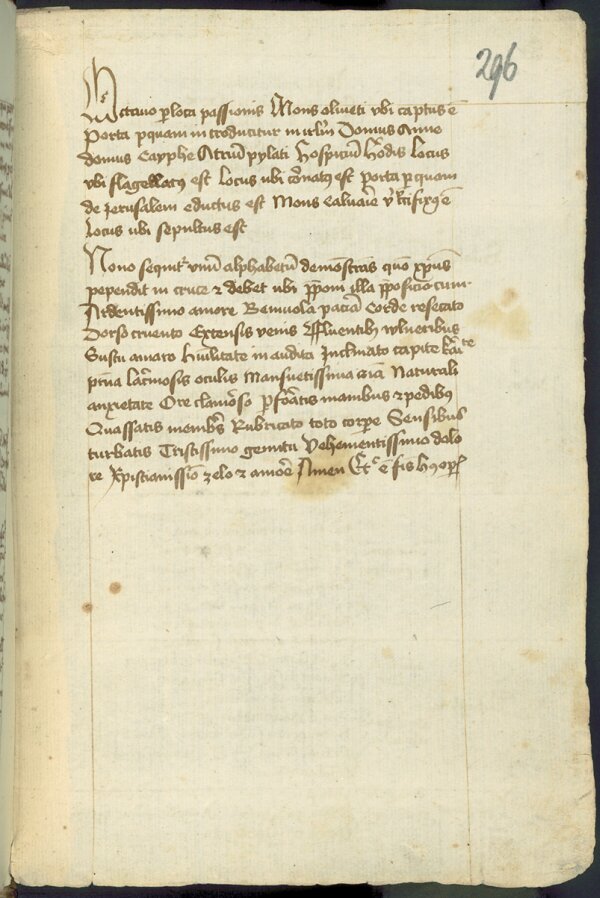 296
Octavo per loca passionis Mons oliveti ubi captus ē
Porta per quam introducitur in irlm̄ Domus Anne
domus Cayphe Atriū pylati Hospiciū Hodis Locus
ubi flagellatus est Locus ubi coronatus est porta per quam
de Jerusalem eductus est Mons calvarie ubi crucifixus ē
Locus ubi sepultus est
Nono sequit̄ unū alphabetū demōstrās quō xp̄us
pependit in cruce ⁊ debet ubi illa p̄posicio cum
Ardentissimo amore Benivola paciā Corde resecato
Dorso cruento Extensis venis Affluentib vulneribus
Gustu amaro Humilitate inaudita Inclinato capite
lac̄mosis oculis Mansuetissima Naturali
anxietate Ore clamoso perforatis manibus ⁊ pedibus
Quassatis membris Rubricato toto corpore Sensibus
turbatis Tristissimo gemitu Vehementissimo dolo
re Xpistianissimo zelo ⁊ amore Amen Etc ē finis